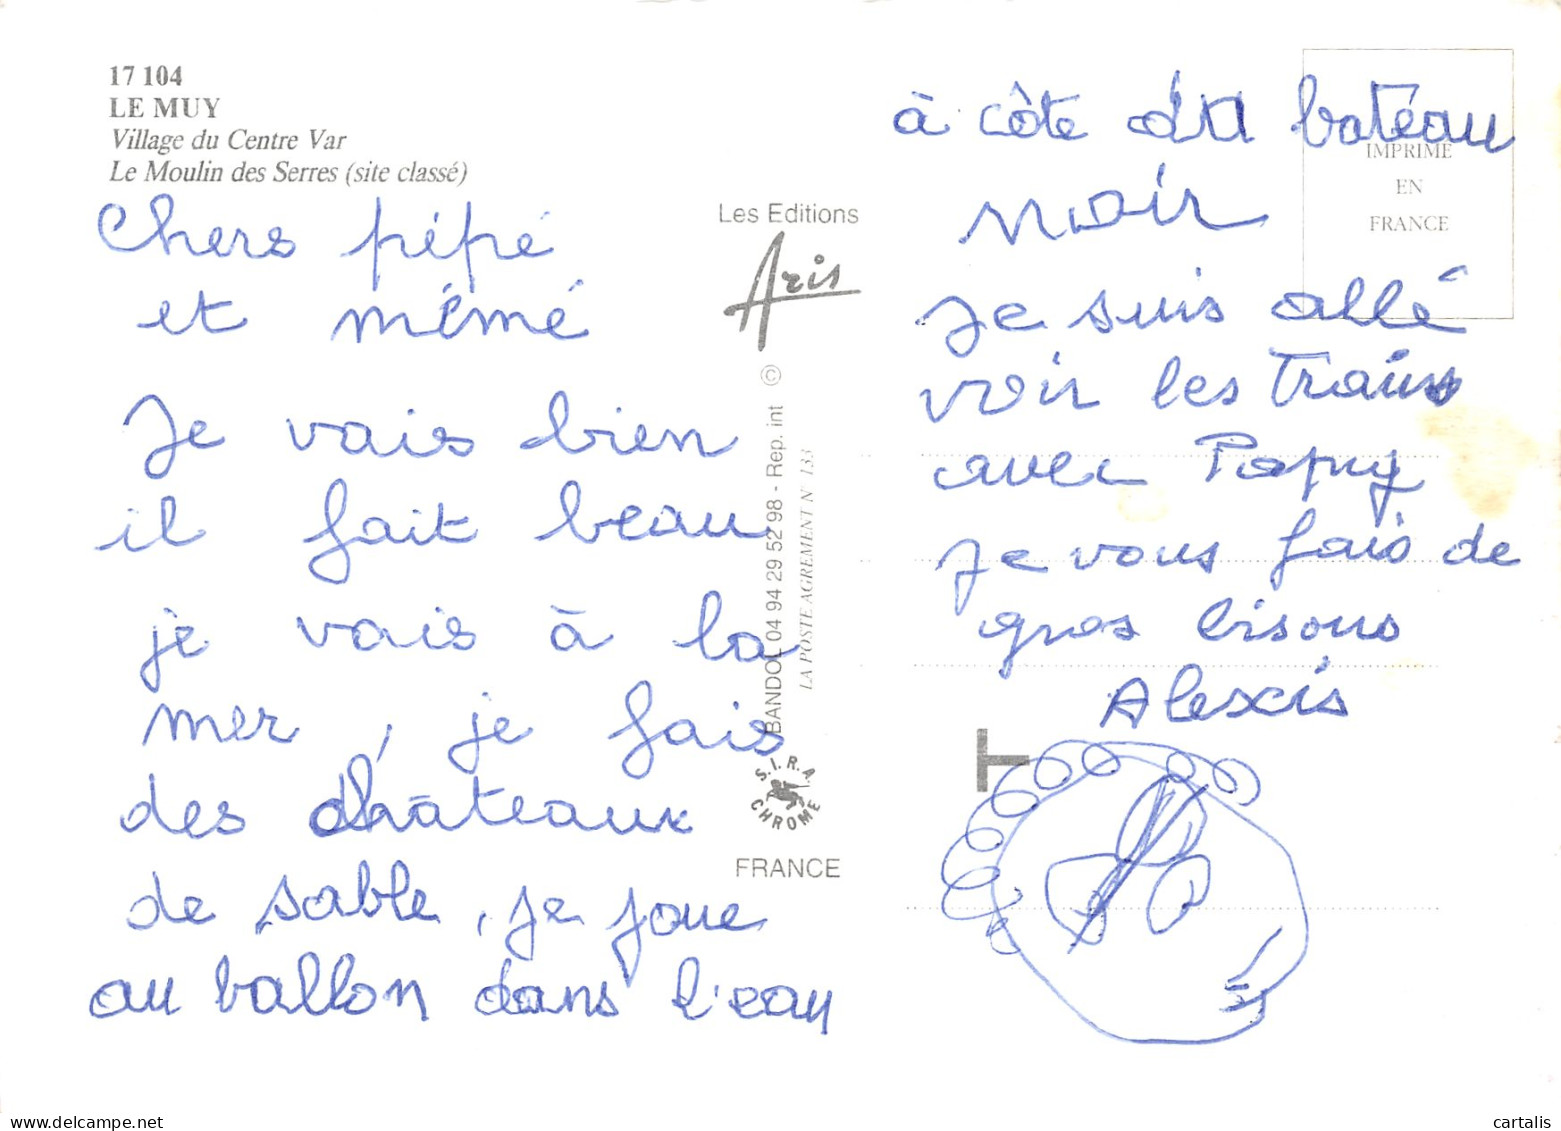 17 104
LE MUY
Village du Centre Var
Le Moulin des Serres (site classé)
Chers pépé
et mémé
Je vais bien
il fait beau
je vais à la
mer, je fais
des châteaux
de sable, je joue
au ballon dans l'eau
Les Editions
Aris
BANDOL 04 94 29 52 98 - Rep. int ©
LA POSTE AGREMENT N° 133
S.I.R.A.
CHROME
FRANCE
à côte du batéau
noir
je suis allé
voir les trains
avec Papy
je vous fais de
gros bisous
Alexis
IMPRIME
EN
FRANCE
T
cartalis